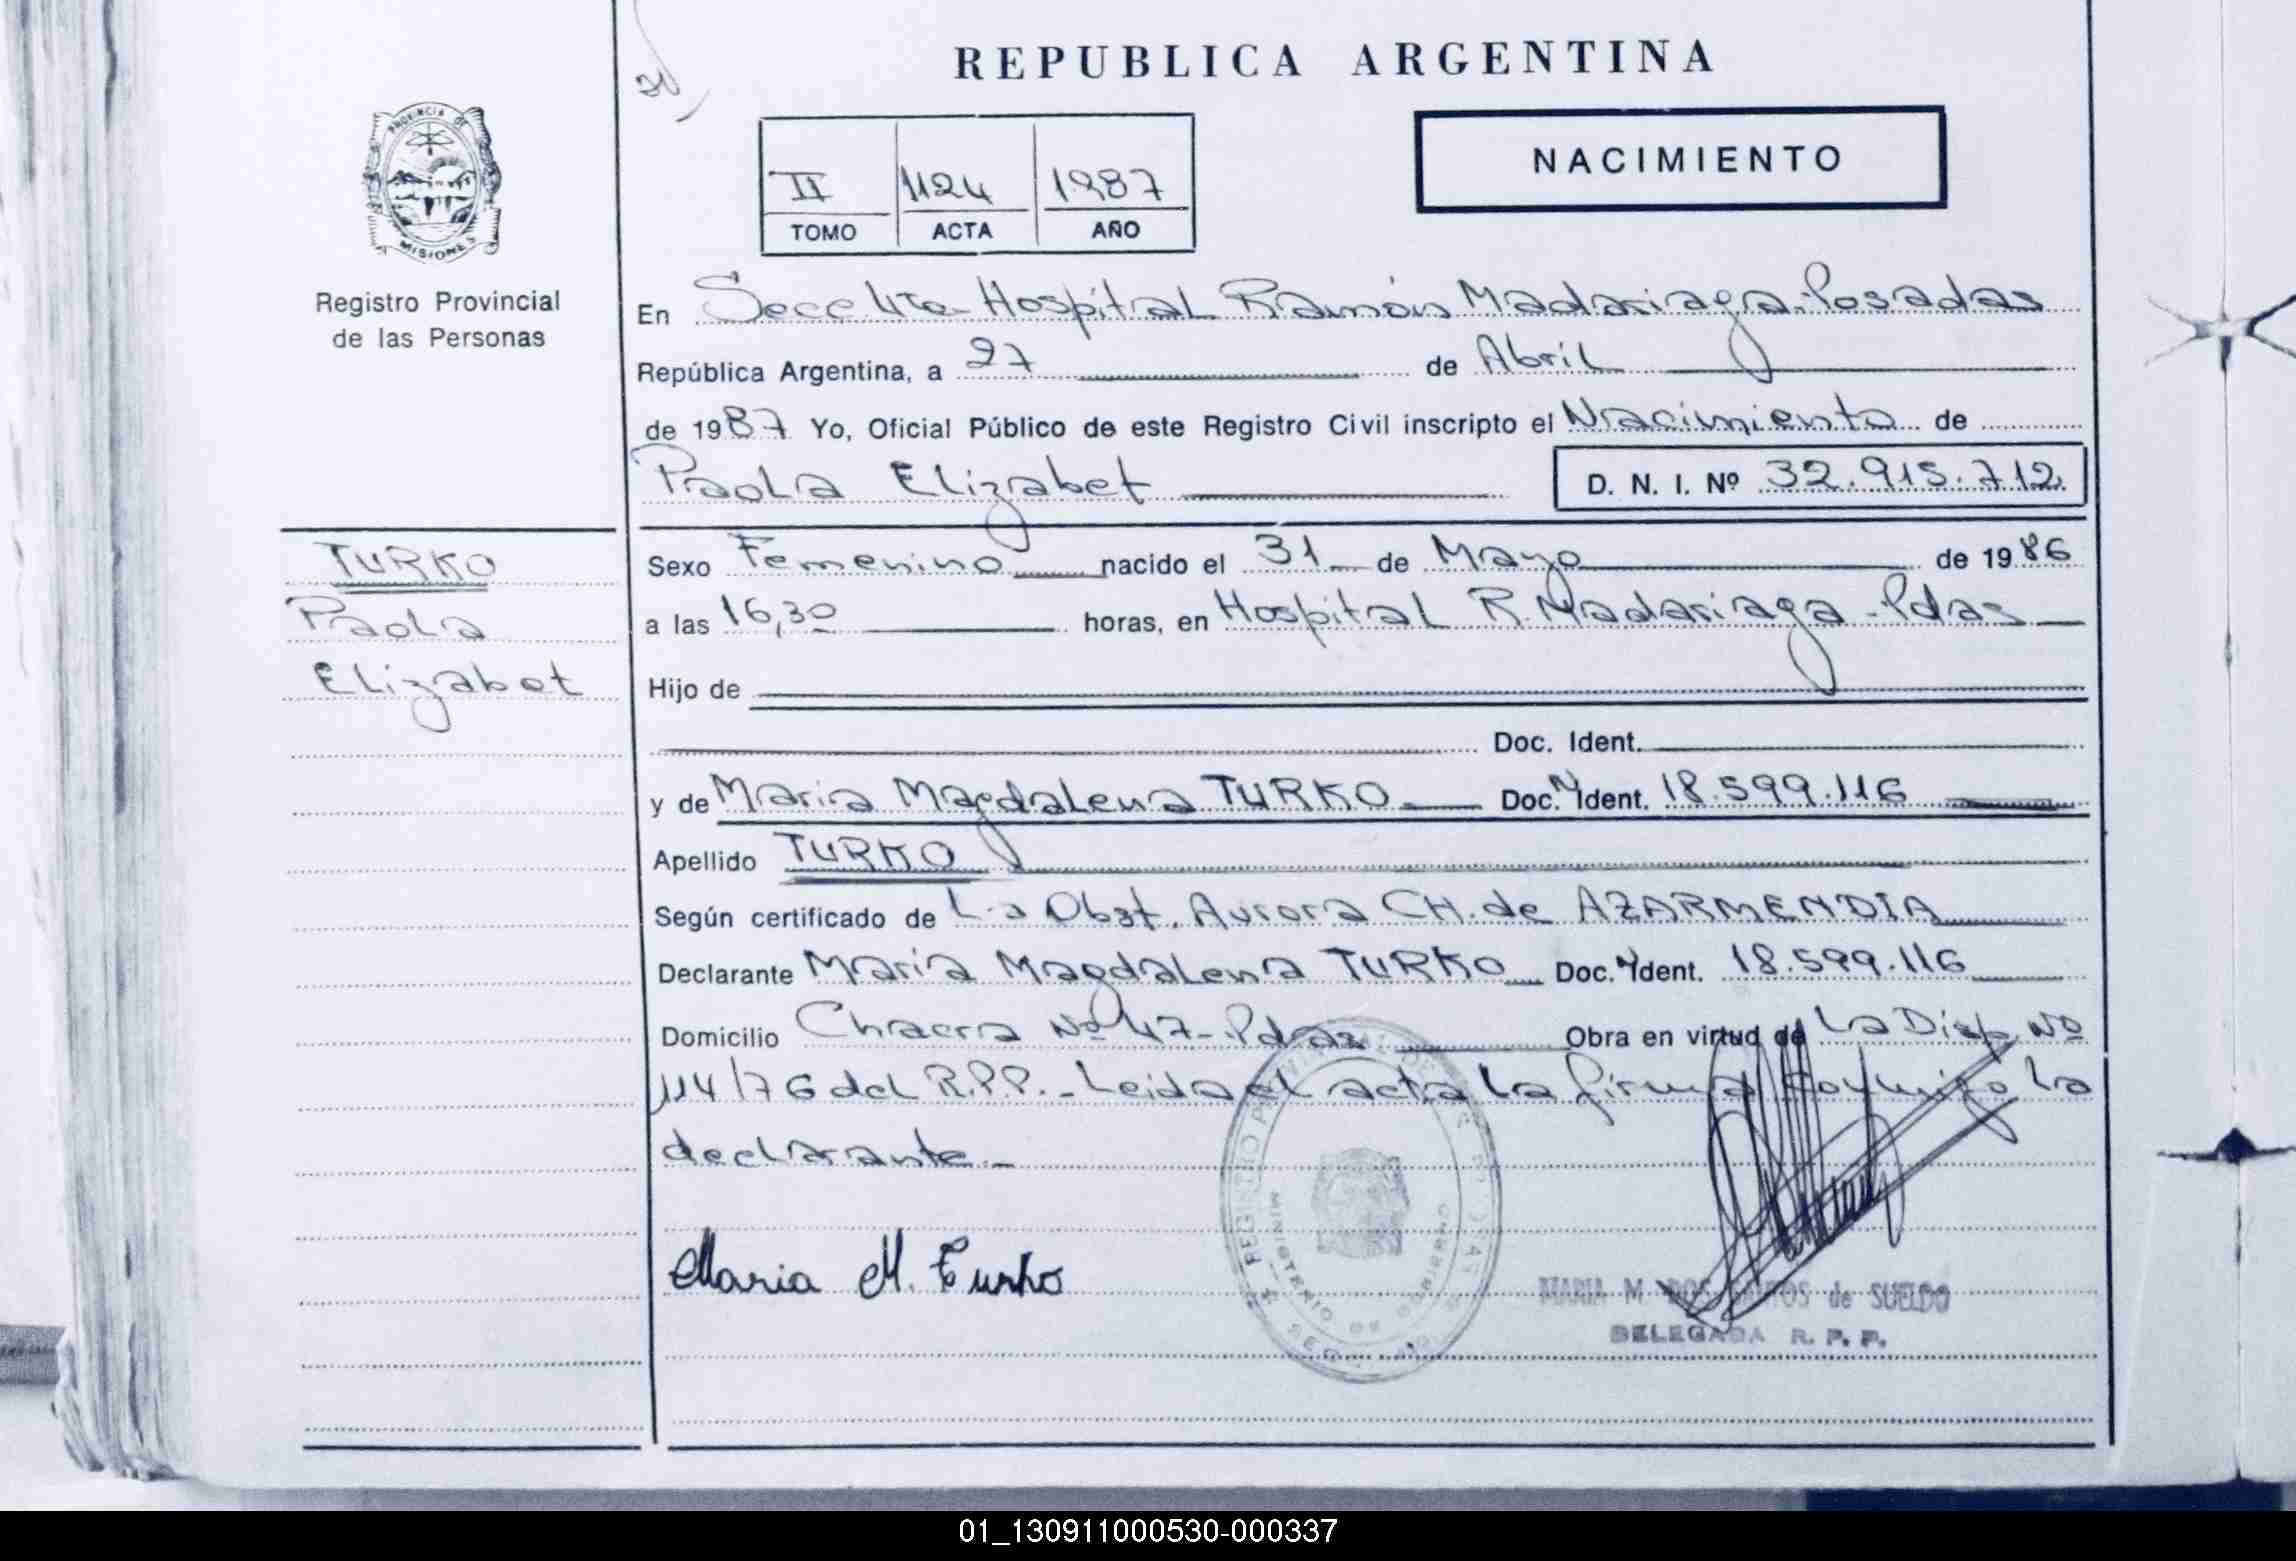 REPUBLICA ARGENTINA
PROVINCIA DE
MISIONES
Registro Provincial
de las Personas
NACIMIENTO
II 1124 1987
TOMO ACTA AÑO
En Secc 4ta Hospital Ramón Madariaga-Posadas
República Argentina, a 27 de Abril
de 1987 Yo, Oficial Público de este Registro Civil inscripto el Nacimiento de
Paola Elizabet D. N. I. Nº 32.915.712
TURKO
Paola
Elizabet
Sexo Femenino nacido el 31 de Mayo de 1986
a las 16,30 horas, en Hospital R. Madariaga-Pdas
Hijo de
Doc. Ident.
y de Maria Magdalena TURKO Doc. Ident. 18.599.116
Apellido TURKO
Según certificado de La Obst. Aurora CH. de AZARMENDIA
Declarante Maria Magdalena TURKO Doc. Ident. 18.599.116
Domicilio Chacra Nº 47-Pdas Obra en virtud de La Disp. Nº
114/76 del R.P.P.- Leida el acta La firma conmigo La
declarante-
Maria M. Turko
MARIA M. DOS SANTOS de SUELDO
DELEGADA R. P. P.
01_130911000530-000337